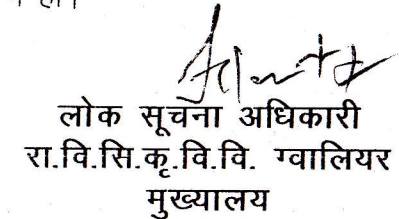 लोक सूचना अधिकारी
रा.वि.सि.कृ.वि.वि. ग्वालियर
मुख्यालय